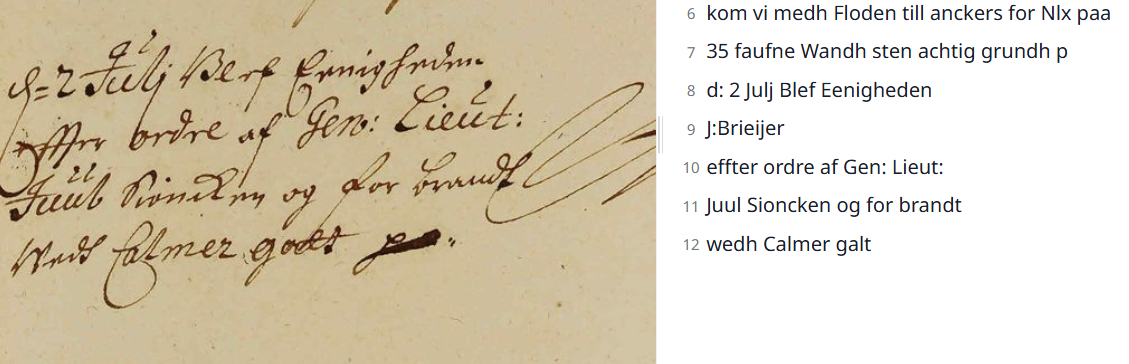 d: 2 Julj Blef Eenigheden
effter ordre af Gen: Lieut:
Juul Sioncken og for brandt
wedh Calmer galt
6 kom vi medh Floden till anckers for Nlx paa
7 35 faufne Wandh sten achtig grundh p
8 d: 2 Julj Blef Eenigheden
9 J:Brieijer
10 effter ordre af Gen: Lieut:
11 Juul Sioncken og for brandt
12 wedh Calmer galt